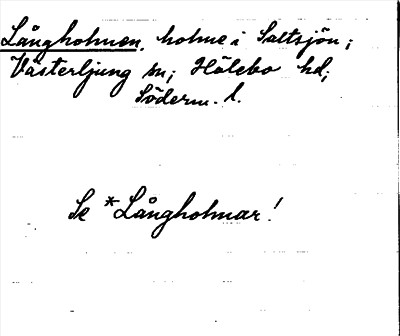 Långholmen, holme i Saltsjön;
Västerljung sn; Hölebo hd;
Söderm. l.
Se *Långholmar!